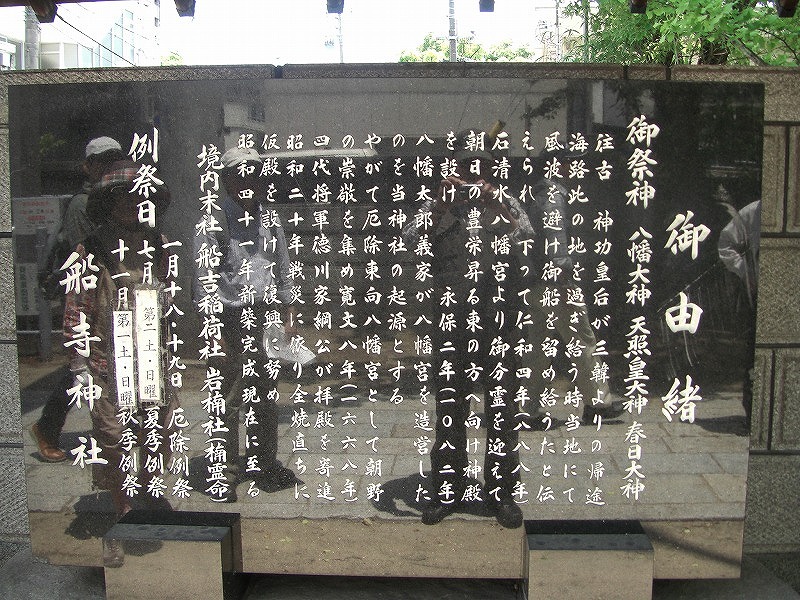 御由緒
御祭神 八幡大神 天照皇大神 春日大神
往古 神功皇后が三韓よりの帰途
海路此の地を過ぎ給う時当地にて
風波を避け御船を留め給うたと伝
えられ 下って仁和四年(八八八年)
石清水八幡宮より御分霊を迎えて
朝日の豊栄昇る東の方へ向け神殿
を設け 永保二年(一〇八二年)
八幡太郎義家が八幡宮を造営した
のを当神社の起源とする
やがて厄除東向八幡宮として朝野
の崇敬を集め寛文八年(一六六八年)
四代将軍徳川家綱公が拝殿を寄進
昭和二十年戦災に依り全焼直ちに
仮殿を設けて復興に努め
昭和四十一年新築完成現在に至る
境内末社 船吉稲荷社 岩楠社(楠霊命)
例祭日 一月十八・十九日 厄除例祭
七月 第二土・日曜 夏季例祭
十一月 第一土・日曜 秋季例祭
船寺神社